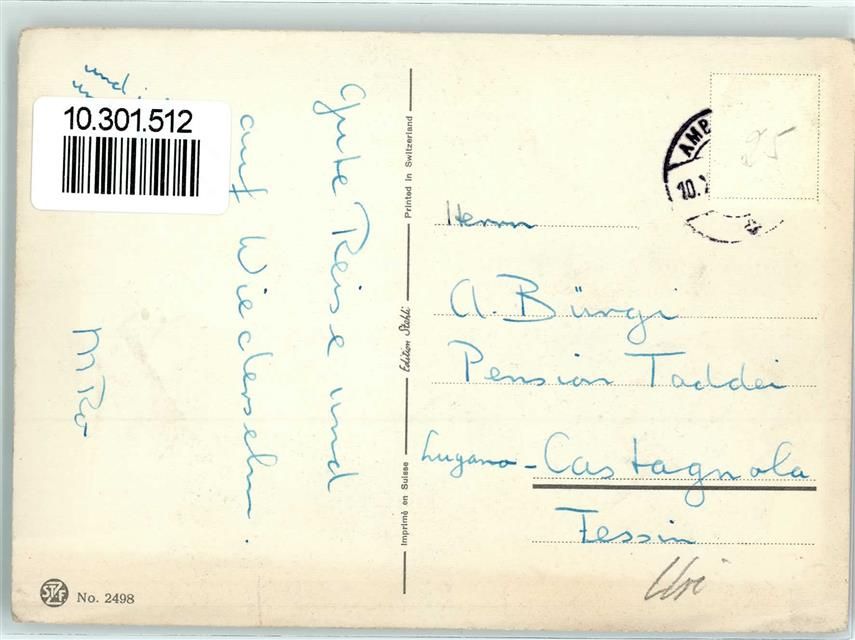 10.301.512
und
Gute Reise und
auf Wiedersehn.
M Ro
Printed in Switzerland
Edition Stehli
Imprimé en Suisse
No. 2498
AMB
10.
25
Herrn
A. Bürgi
Pension Taddei
Lugano-Castagnola
Tessin
Uri